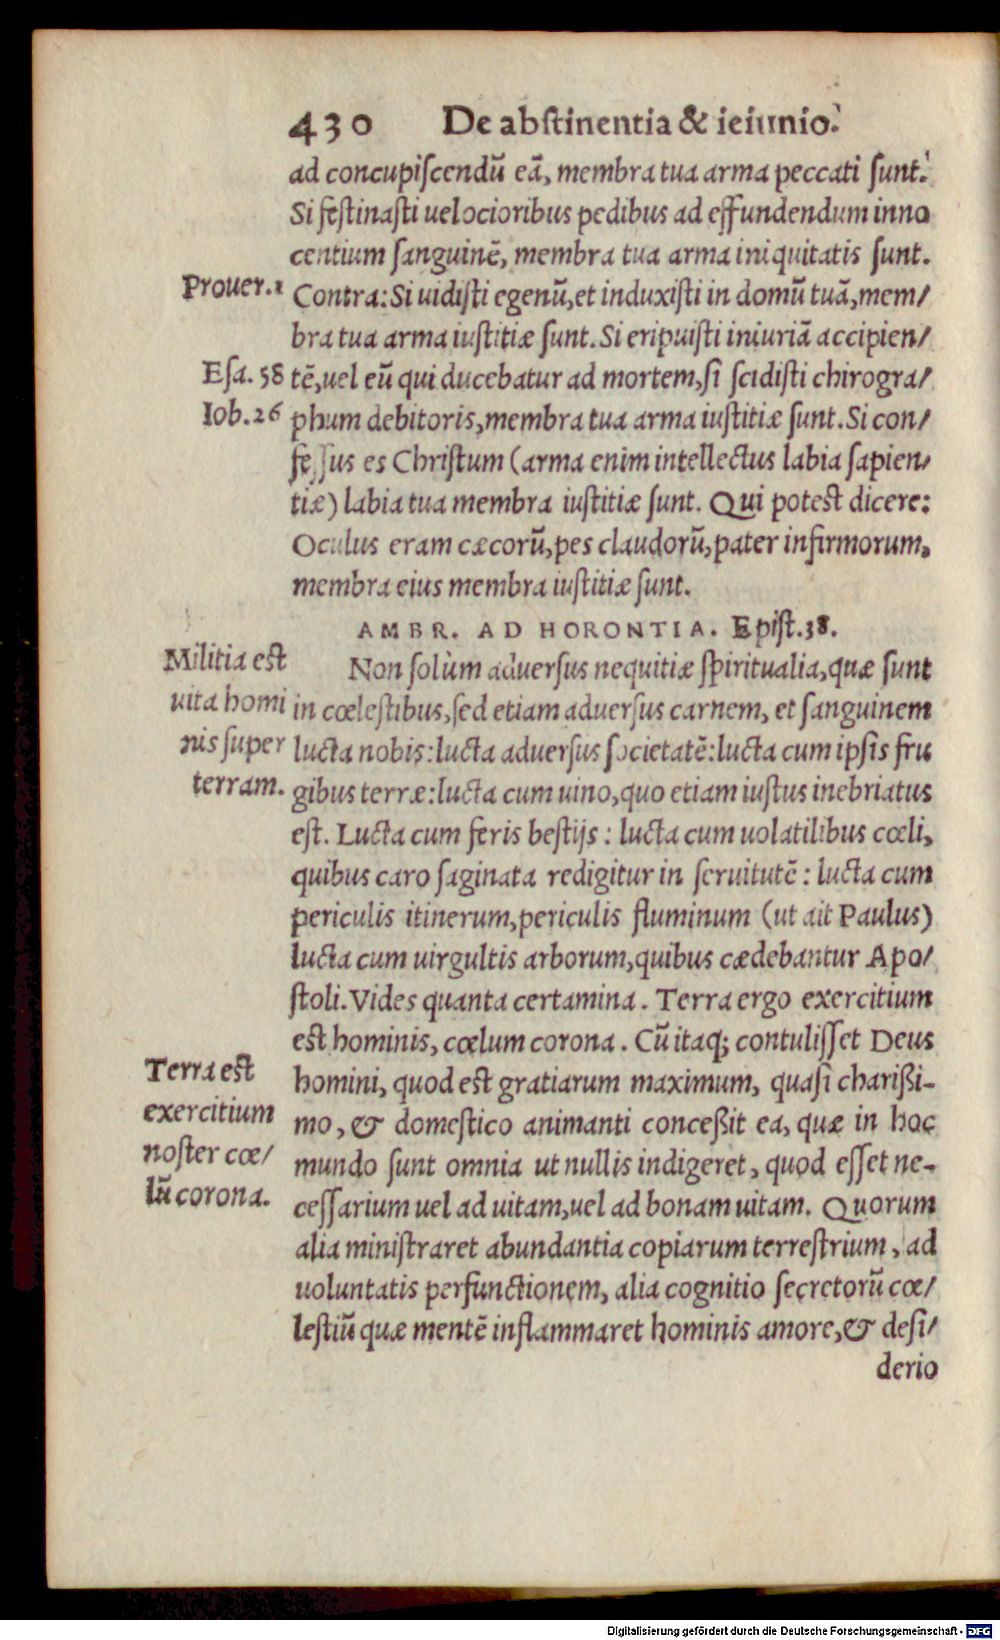 430 De abstinentia & ieiunio.
ad concupiſcendū eā, membra tua arma peccati ſunt.
Si feſtinaſti uelocioribus pedibus ad effundendum inno
centium ſanguinē, membra tua arma iniquitatis ſunt.
Prouer.1
Contra: Si uidiſti egenū, et induxiſti in domū tuā, mem/
bra tua arma iuſtitiæ ſunt. Si eripuiſti iniuriā accipien/
Eſa. 58
tē, uel eū qui ducebatur ad mortem, ſi ſcidiſti chirogra/
Iob. 26
phum debitoris, membra tua arma iuſtitiæ ſunt. Si con/
feſſus es Chriſtum (arma enim intellectus labia ſapien/
tiæ) labia tua membra iuſtitiæ ſunt. Qui poteſt dicere:
Oculus eram cæcorū, pes claudorū, pater infirmorum,
membra eius membra iuſtitiæ ſunt.
AMBR. AD HORONTIA. Epiſt. 38.
Militia eſt
uita homi
nis ſuper
terram.
Non ſolùm aduerſus nequitiæ ſpiritualia, quæ ſunt
in cœleſtibus, ſed etiam aduerſus carnem, et ſanguinem
lucta nobis: lucta aduerſus ſocietatē: lucta cum ipſis fru
gibus terræ: lucta cum uino, quo etiam iuſtus inebriatus
eſt. Lucta cum feris beſtijs: lucta cum uolatilibus cœli,
quibus caro ſaginata redigitur in ſeruitutē: lucta cum
periculis itinerum, periculis fluminum (ut ait Paulus)
lucta cum uirgultis arborum, quibus cædebantur Apo/
ſtoli. Vides quanta certamina. Terra ergo exercitium
eſt hominis, cœlum corona. Cū itaq; contuliſſet Deus
Terra eſt
exercitium
noſter cœ/
lū corona.
homini, quod eſt gratiarum maximum, quaſi chariſsi-
mo, & domeſtico animanti conceſsit ea, quæ in hoc
mundo ſunt omnia ut nullis indigeret, quod eſſet ne-
ceſſarium uel ad uitam, uel ad bonam uitam. Quorum
alia miniſtraret abundantia copiarum terreſtrium, ad
uoluntatis perfunctionem, alia cognitio ſecretorū cœ/
leſtiū quæ mentē inflammaret hominis amore, & deſi/
derio
Digitalisierung gefördert durch die Deutsche Forschungsgemeinschaft - DFG